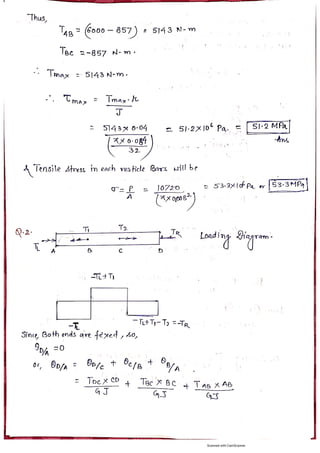 Thus,
T_AB = (6000 - 857) = 5143 N-m
T_BC = -857 N-m.
∴ T_max = 5143 N-m.
∴ τ_max = T_max · r / J
= 5143 × 0.04 / (π × 0.08⁴ / 32) = 51.2 × 10⁶ Pa. = 51.2 MPa
Ans.
Tensile stress in each vertical Bars will be
σ = P / A = 10720 / = 53.3 × 10⁶ Pa or 53.3 MPa
Q.2. T_L T1 T2 T_R Loading Diagram.
A B C D
-T_L + T1
-T_L
-T_L + T1 - T2 = -T_R
Since, Both ends are fixed, so,
θ_D/A = 0
or, θ_D/A = θ_D/C + θ_C/B + θ_B/A
= T_DC × CD / GJ + T_BC × BC / GJ + T_AB × AB / GJ
Scanned with CamScanner